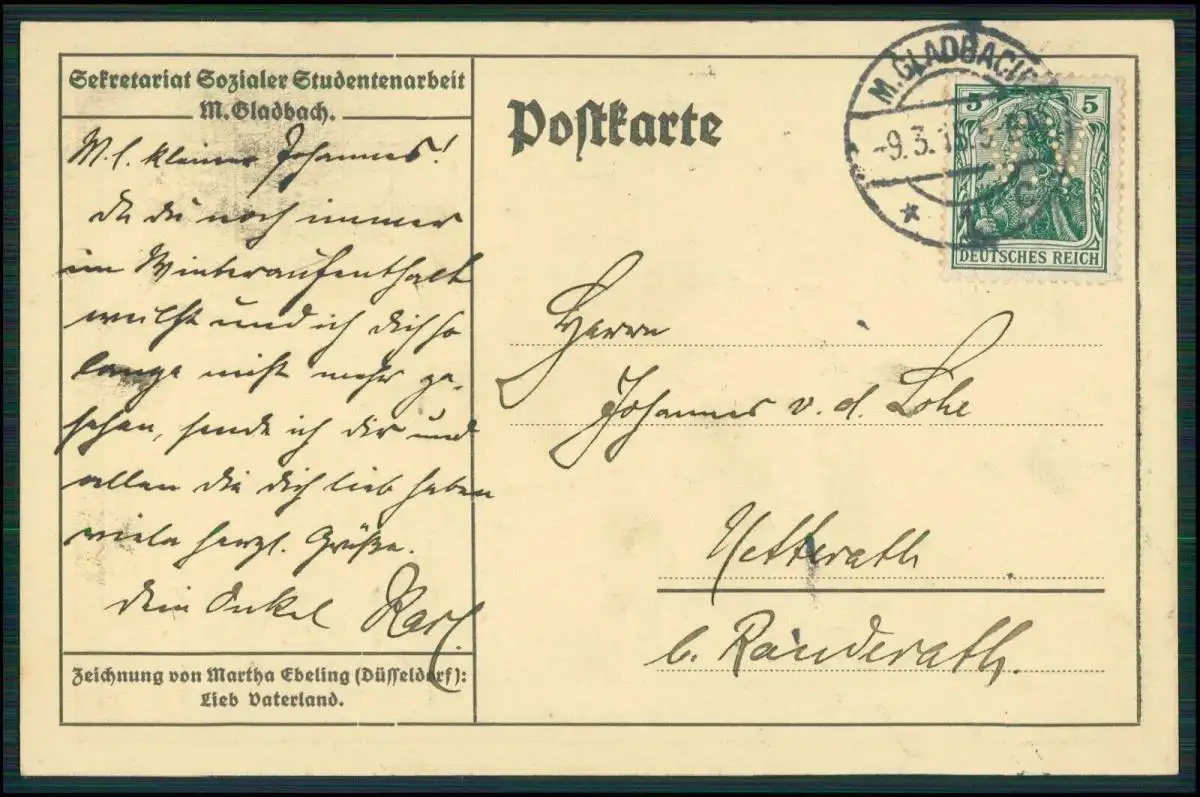 Sekretariat Sozialer Studentenarbeit
M. Gladbach.
M. l. kleiner Johannes!
Da du noch immer
im Winteraufenthalt
weilst und ich dich so
lange nicht mehr ge-
sehen, sende ich dir und
allen die dich lieb haben
viele herzl. Grüße.
Dein Onkel Karl.
Zeichnung von Martha Ebeling (Düsseldorf):
Lieb Vaterland.
Postkarte
M. GLADBACH
-9.3.
5 5
DEUTSCHES REICH
Herrn
Johannes v. d. Lohe
Uetterath
b. Randerath.